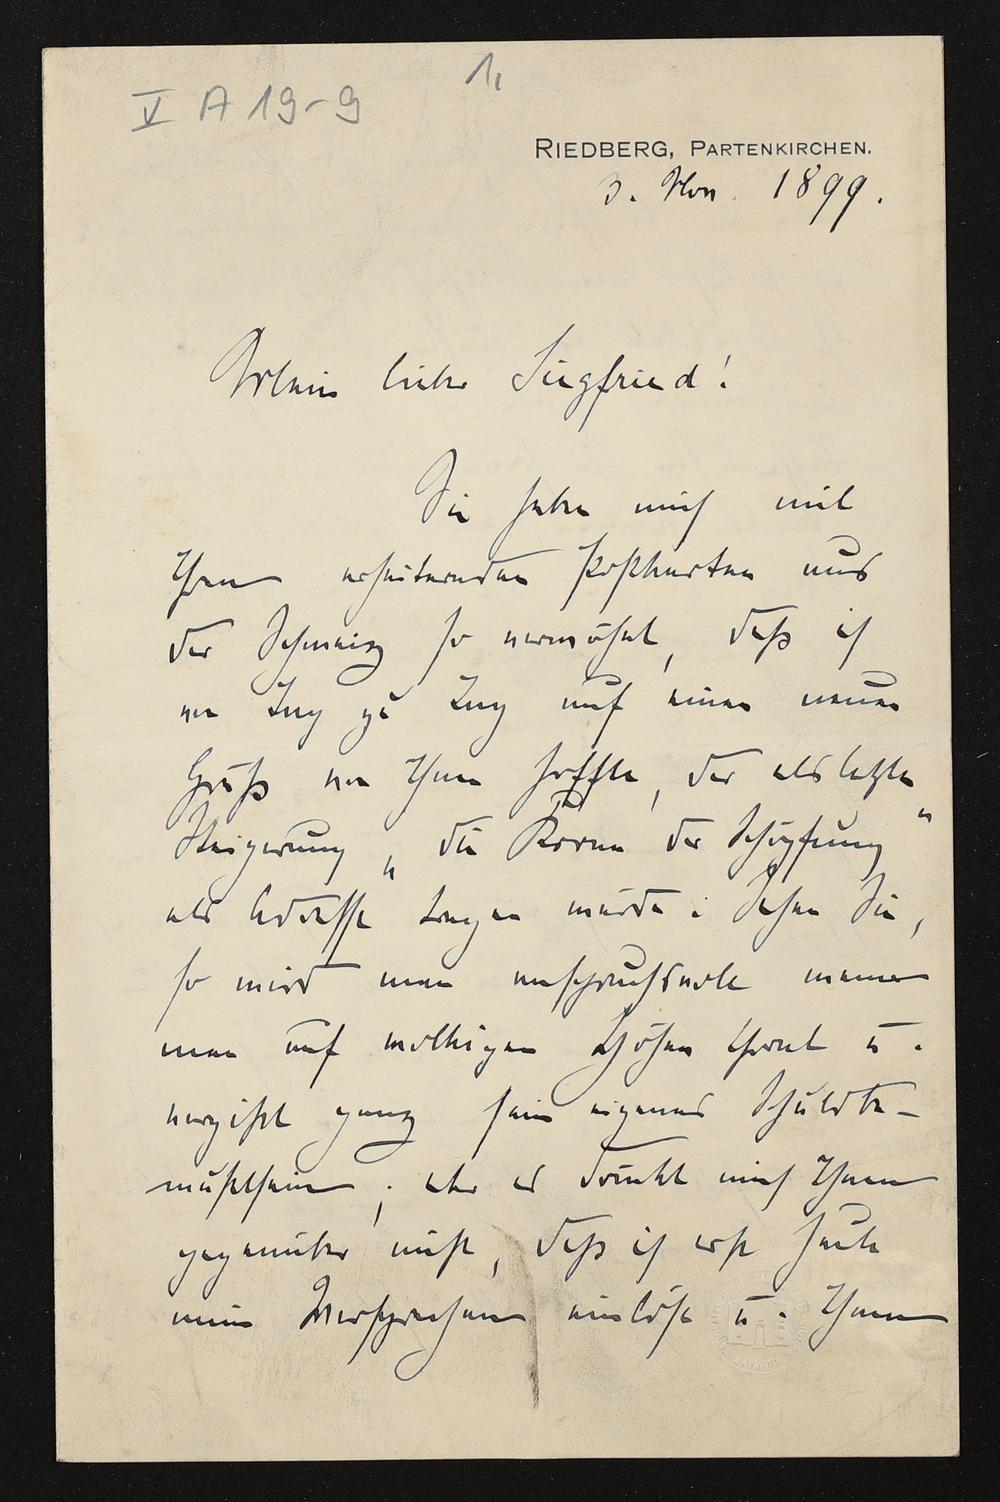 V A 19-9
1,
RIEDBERG, PARTENKIRCHEN.
3. Nov. 1899.
Mein lieber Siegfried!
Sie haben mich mit
Ihren erheiternden Postkarten aus
der Schweiz so verwöhnt, daß ich
von Tag zu Tag auf einen neuen
Gruß von Ihnen hoffte, der als letzte
Steigerung „die Krone der Schöpfung"
als Adresse tragen würde. Sehen Sie,
so wird man anspruchsvoll wenn
man auf wolkigen Höhen thront u.
vergißt ganz sein eigenes Schuldbe-
wußtsein; aber es drückt mich Ihnen
gegenüber nicht, daß ich erst heute
mein Versprechen einlöse u. Ihnen